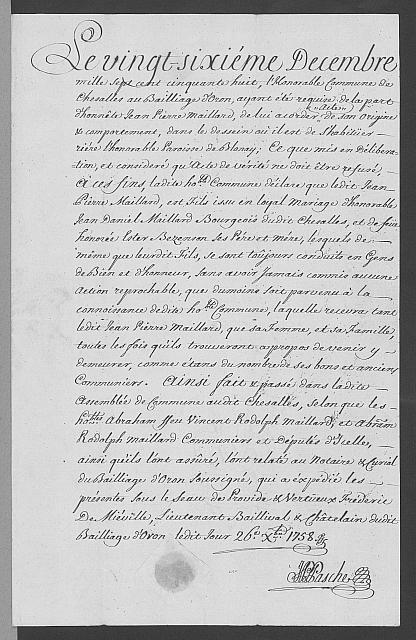 Le vingt-sixiéme Decembre
mille sept cent cinquante huit, l'Honorable Commune de
Chesalles au Bailliage d'Oron, ayant été requise de la part
un Acte
d'honnête Jean Pierre Maillard, de lui acorder, de son Origine
& comportement, dans le dessein où il est de s'habituer
riére l'honorable Paroisse de Blonay; Ce que mis en Délibera-
tion, et consideré qu'Acte de vérité ne doit être refusé,
A ces fins ladite ho.ble Commune déclare que ledit Jean
Pierre Maillard, est Fils issu en loyal Mariage d'honorable
Jean Daniel Maillard Bourgeois dudit Chesalles, et de feüe
honorée Ester Bezenson ses Pére et mére, lesquels de
même que leurdit Fils, se sont toujours conduits en Gens
de Bien et d'honneur, sans avoir Jamais commis aucune
Action reprochable, que dumoins soit parvenu à la
connoissance dedite ho.ble Commune, laquelle recevra tant
ledit Jean Pierre Maillard, que sa Femme, et sa Famille,
toutes les fois qu'ils trouveront apropos de venir y
demeurer, comme étans du nombre de ses bons et anciens
Communiers. Ainsi fait & passé dans ladite
Assemblée de Commune audit Chesalles, selon que les
ho.bles Abraham ffeu Vincent Rodolph Maillard, et Abram
Rodolph Maillard Communiers et Députés d'Icelles,
ainsi qu'ils l'ont assûré, l'ont relaté au Notaire & Curial
du Bailliage d'Oron soussigné, qui a expédié les
présentes sous le Seau de Provide & Vertueux Fréderic
De Miéville, Lieutenant Baillival & Châtelain dudit
Bailliage d'Oron ledit Jour 26.e X.bre 1758.
Pasche